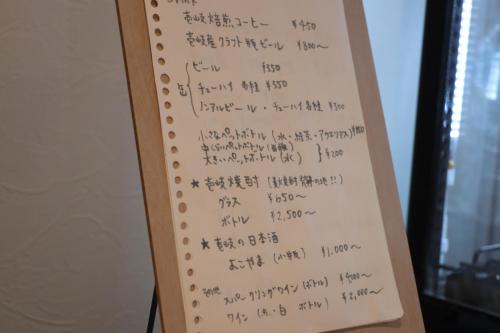 壱岐焙煎コーヒー ¥450
壱岐産クラフト瓶ビール ¥800〜
缶
ビール ¥350
チューハイ 各種 ¥350
ノンアルビール・チューハイ各種 ¥300
小さなペットボトル(水・緑茶・アクエリアス)
中くらいペットボトル(各種)
大きいペットボトル(水) ¥200
★壱岐焼酎(麦焼酎発祥の地!!)
グラス ¥650〜
ボトル ¥2,500〜
★壱岐の日本酒
よこやま(小瓶) ¥1,000〜
スパークリングワイン(ボトル)
ワイン(赤・白 ボトル) ¥2,000〜